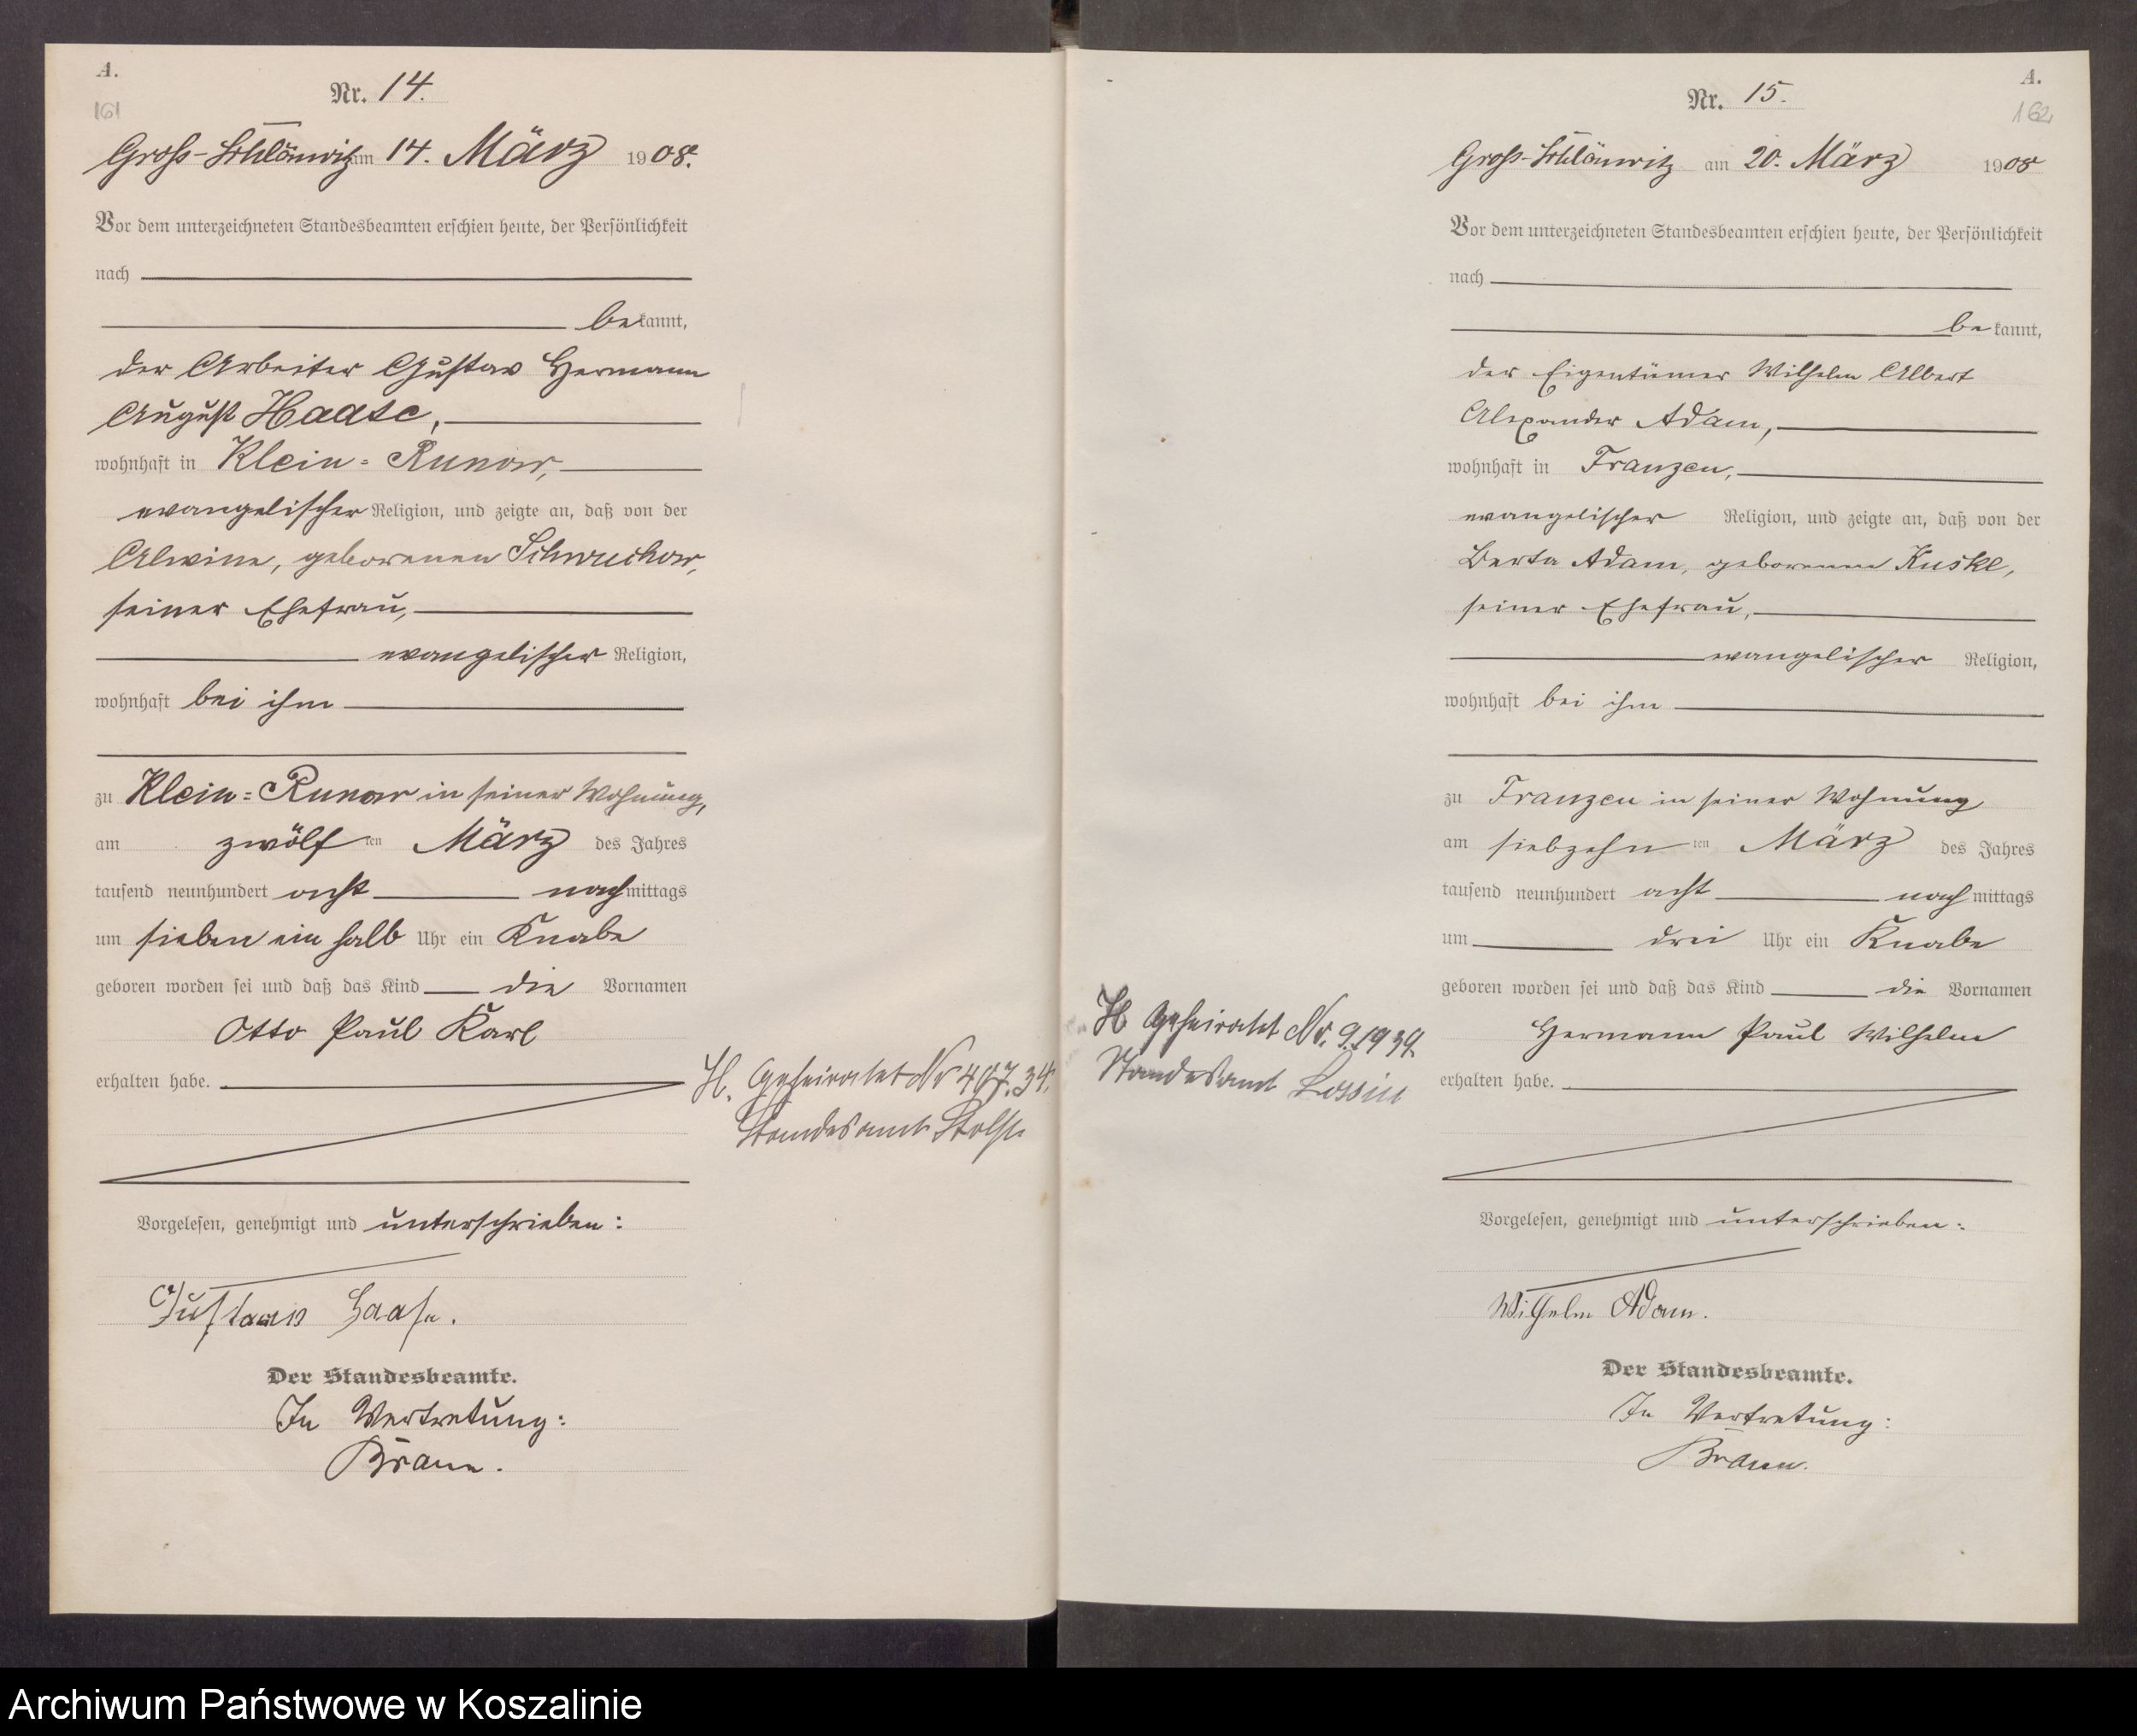 A.
161
Nr. 14.
Groß-Schlönwitz am 14. März 1908.
Vor dem unterzeichneten Standesbeamten erschien heute, der Persönlichkeit
nach
bekannt,
der Arbeiter Gustav Hermann
August Haase,
wohnhaft in Klein-Runow,
evangelischer Religion, und zeigte an, daß von der
Alwine, geborenen Schwuchow,
seiner Ehefrau,
evangelischer Religion,
wohnhaft bei ihm
zu Klein-Runow in seiner Wohnung,
am zwölften März des Jahres
tausend neunhundert acht nachmittags
um sieben ein halb Uhr ein Knabe
geboren worden sei und daß das Kind die Vornamen
Otto Paul Karl
erhalten habe.
H. Geheiratet Nr 407.34.
Standesamt Stolp
Vorgelesen, genehmigt und unterschrieben:
Gustav Haase.
Der Standesbeamte.
In Vertretung:
Braun.
A.
162
Nr. 15.
Groß-Schlönwitz am 20. März 1908
Vor dem unterzeichneten Standesbeamten erschien heute, der Persönlichkeit
nach
bekannt,
der Eigentümer Wilhelm Albert
Alexander Adam,
wohnhaft in Franzen,
evangelischer Religion, und zeigte an, daß von der
Berta Adam, geborenen Kuske,
seiner Ehefrau,
evangelischer Religion,
wohnhaft bei ihm
zu Franzen in seiner Wohnung
am siebzehnten März des Jahres
tausend neunhundert acht nachmittags
um drei Uhr ein Knabe
geboren worden sei und daß das Kind die Vornamen
Hermann Paul Wilhelm
erhalten habe.
H Geheiratet Nr. 9.1939.
Standesamt Lossin
Vorgelesen, genehmigt und unterschrieben:
Wilhelm Adam.
Der Standesbeamte.
In Vertretung:
Braun.
Archiwum Państwowe w Koszalinie